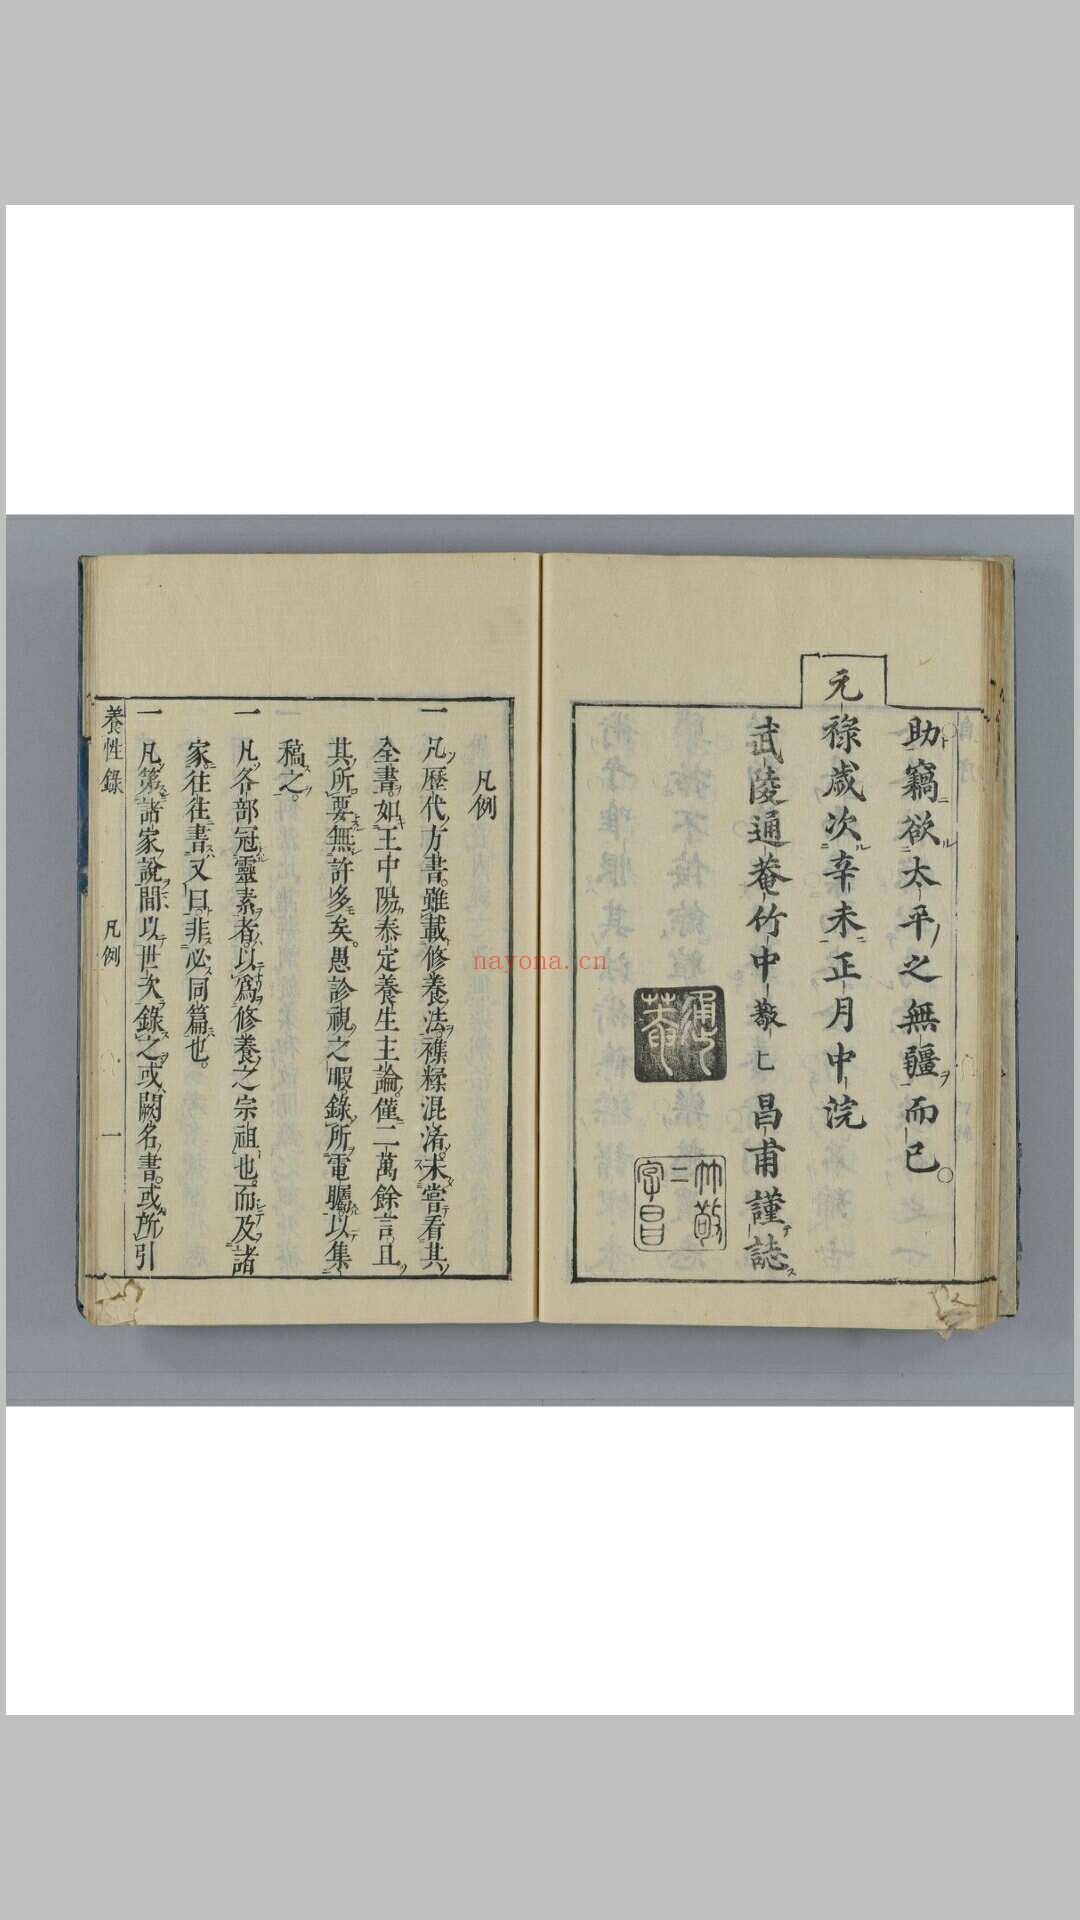 助竊欲太平之無疆而已。
元
祿歲次辛未正月中浣
武陵通菴竹中敬
昌甫謹誌
通菴
竹敬
字昌
凡例
一凡歷代方書。雖載修養法。襍糅混淆。未嘗看其
全書。如王中陽泰定養生主論。僅二萬餘言。且
其所要無許多矣。愚診視之暇。錄所電矚。以集
稿之。
一凡各部冠靈素者。以爲修養之宗祖也。而及諸
家。往往書又曰。非必同篇也。
一凡第諸家說間。以世次錄之。或闕名書。或所引
養性錄
凡例
一
nayona.cn